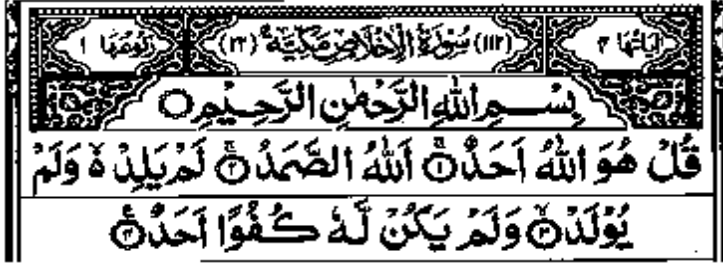 اٰيَاتُهَا ٤ (١١٢) سُوْرَةُ الْاِخْلَاصِ مَكِّيَّةٌ (٢٢) رُكُوْعُهَا ١
بِسْــمِ اللّٰهِ الرَّحْمٰنِ الرَّحِيْمِ ○
قُلْ هُوَ اللّٰهُ اَحَدٌ ۚ﴿١﴾ اَللّٰهُ الصَّمَدُ ۚ﴿٢﴾ لَمْ يَلِدْ ۙ۬ وَلَمْ
يُوْلَدْ ۙ﴿٣﴾ وَلَمْ يَكُنْ لَّهٗ كُفُوًا اَحَدٌ ﴿٤﴾